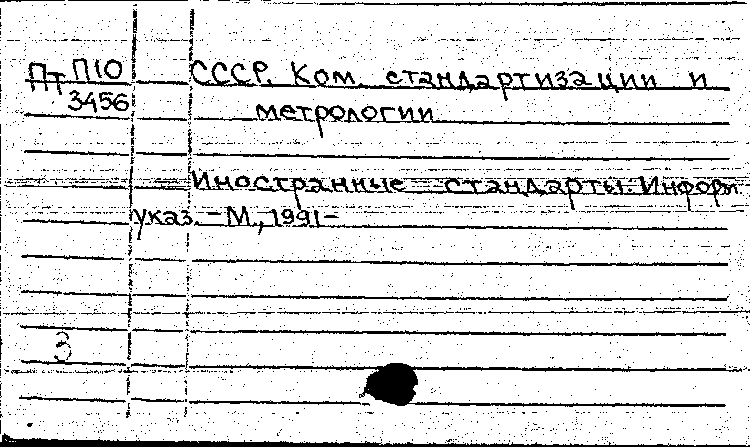 Пт П10 СССР. Ком. стандартизации и
3456 метрологии
Иностранные стандарты: Информ.
указ. – М., 1991–
3